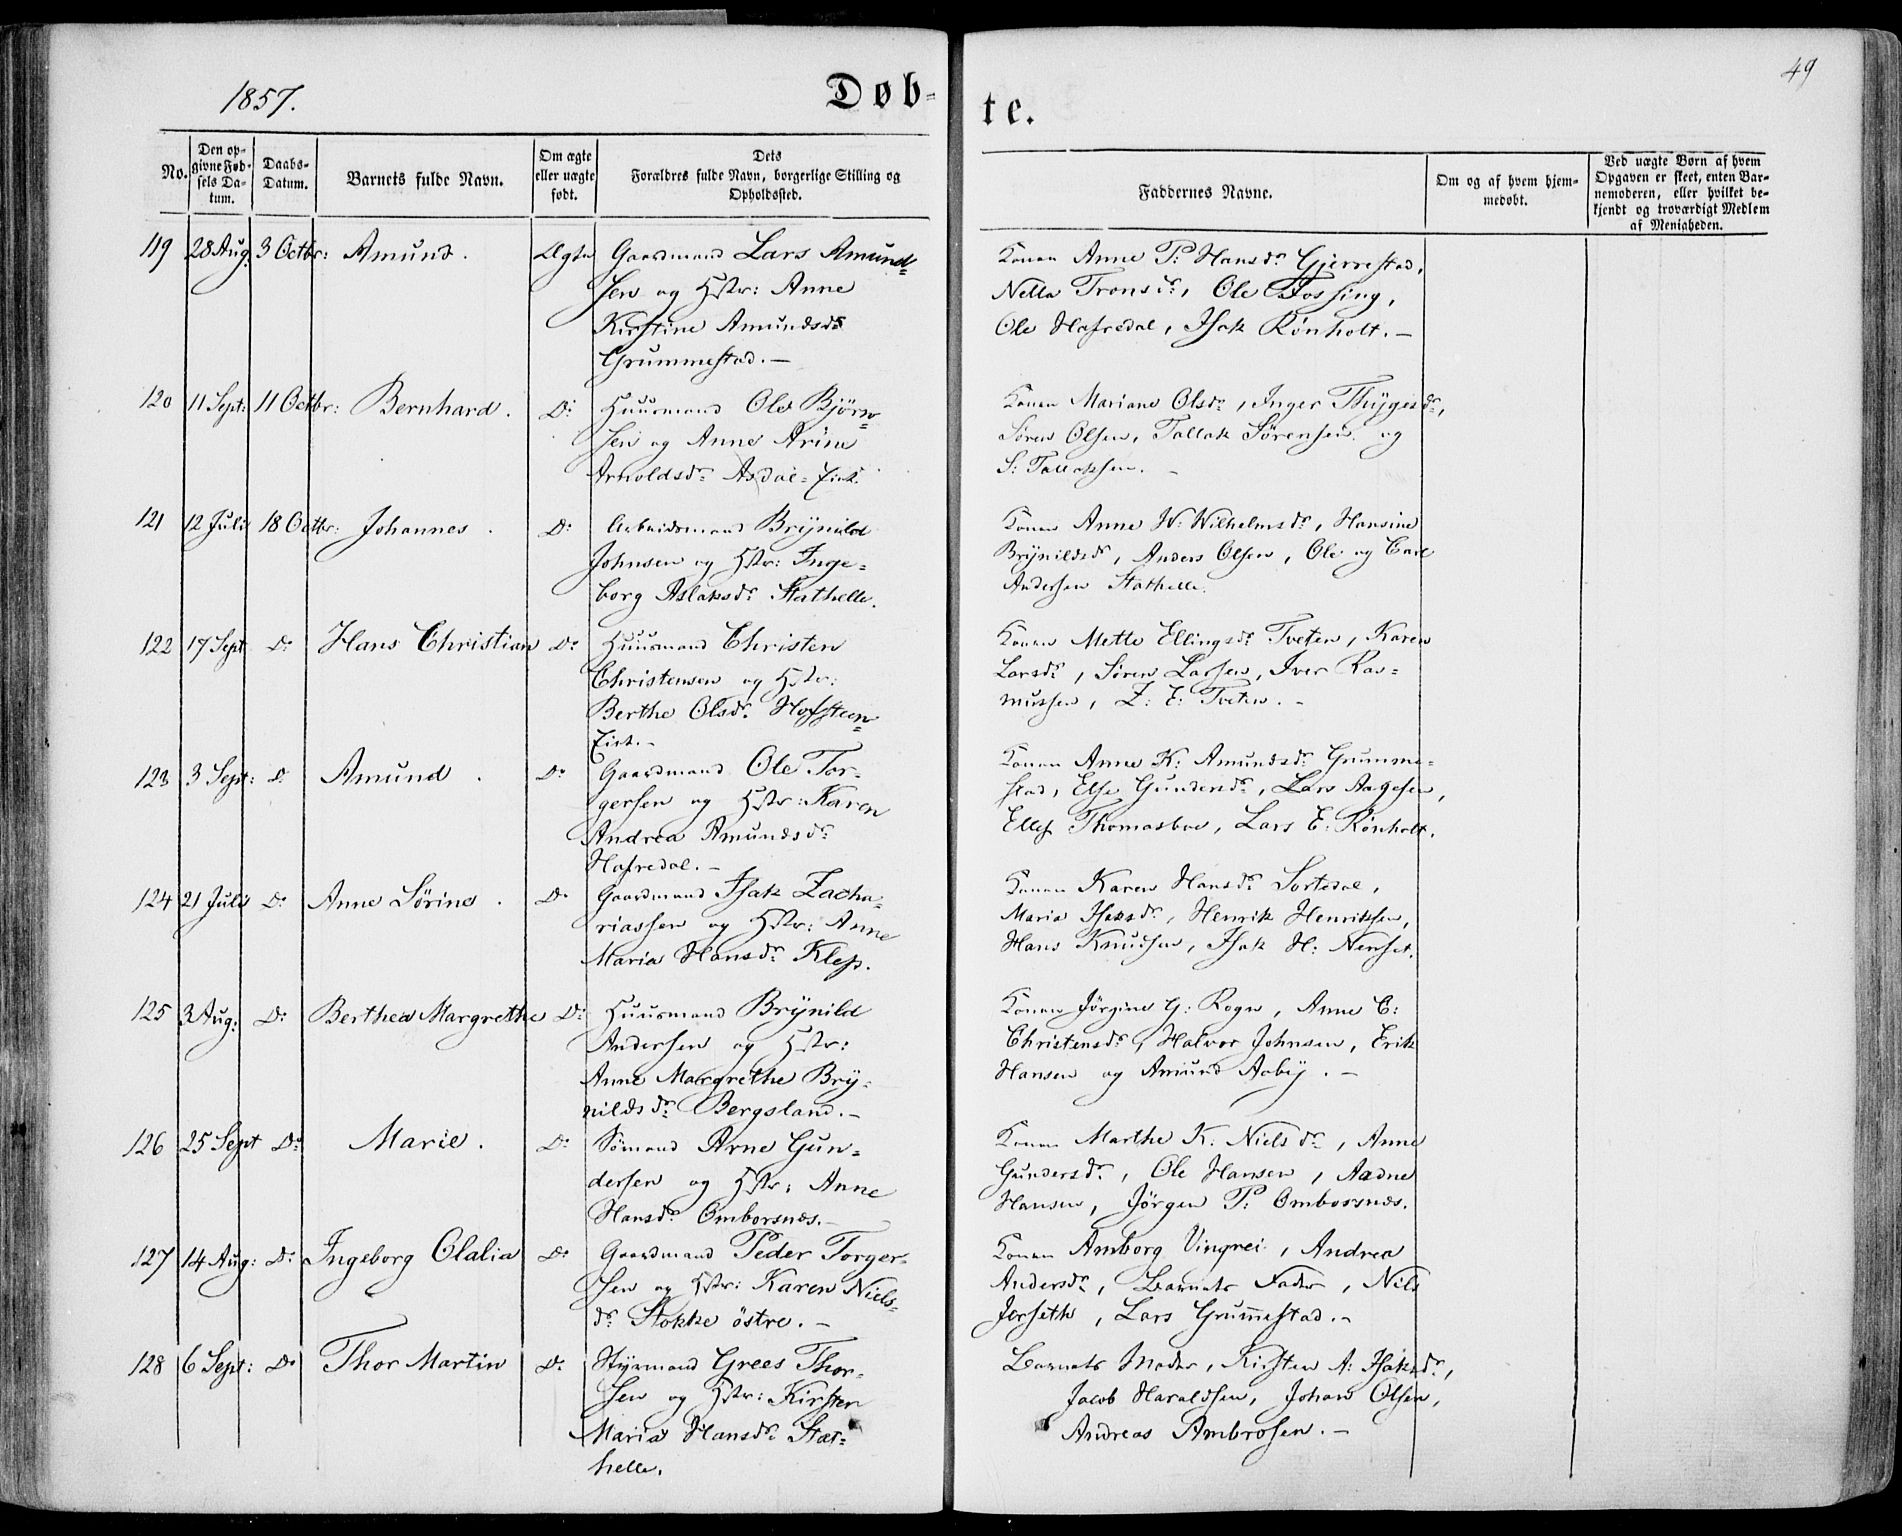 1857.
Døb-
te.
49
No.
Den op-
givne Fød-
sels Da-
tum.
Daabs-
Datum.
Barnets fulde Navn.
Om ægte
eller uægte
født.
Dets
Forældres fulde Navn, borgerlige Stilling og
Opholdssted.
Faddernes Navne.
Om og af hvem hjem-
medøbt.
Ved uægte Børn af hvem
Opgaven er skeet, enten Bar-
nemoderen, eller hvilket be-
kjendt og troværdigt Medlem
af Menigheden.
119 28 Aug. 3 Octbr: Amund. Ægte Gaardmand Lars Amund-
sen og Hstr: Anne
Kirstine Amundsdr
Grummestad. —
Konen Anne P: Hansdr. Gjerrestad,
Nella Tronsdr., Ole Fossing,
Ole Hafredal, Isak Rönholt. —
120 11 Sept: 11 Octbr: Bernhard. Do: Huusmand Ole Björn-
sen og Anne
Arnoldsdr. Asdal-
Konen Mariane Olsdr., Inger Thygesdr.,
Sören Olsen, Tallak Sörensen og
S: Tallaksen. -
121 12 Juli 18 Octbr: Johannes. Do: Arbeidsmand Brÿnild
Johnsen og Hstr: Inge-
borg Aslaksdr. Stathelle.
Konen Anne W: Wilhelmsdr., Hansine
Brÿnildsdr, Anders Olsen, Ole og Carl
Andersen Stathelle.
122 17 Sept Do: Hans Christian Do: Huusmand Christen
Christensen og Hstr:
Berthe Olsdr.
Konen Mette Ellingsdr. Tveten, Karen
Larsdr., Sören Larsen, Iver Ras-
mussen, Z: E: Tveten. -
123 3 Sept: Do Amund. Do Gaardmand Ole Tor-
gersen og Hstr: Karen
Andrea Amundsdr.
Hafredal. -
Konen Anne K: Amundsdr. Grumme-
stad, Else Gundersdr., Lars Aagesen,
Ellef Thomasboe, Lars E: Rönholt.
124 21 Juli Do: Anne Sörine. Do Gaardmand Isak Zacha-
riassen og Hstr: Anne
Maria Hansdr. Klep.
Konen Karen Hansdr. Sortedal,
Maria Isaksdr., Henrik Henriksen,
Hans Knudsen, Isak H: Nenset.
125 3 Aug: Do: Berthea Margrethe Do: Huusmand Brÿnild
Andersen og Hstr:
Anne Margrethe Brÿ-
nildsdr. Bergsland. -
Konen Jörgine G: Rogn, Anne C:
Christensdr., Halvor Johnsen, Erik
Hansen og Amund Aabÿ. -
126 25 Sept Do: Marie. Do: Sömand Arne Gun-
dersen og Hstr: Anne
Hansdr. Omborsnes. -
Konen Marthe K: Nielsdr., Anne
Gundersdr., Ole Hansen, Aadne
Hansen, Jörgen P: Omborsnes.
127 14 Aug: Do: Ingeborg Olalia Do: Gaardmand Peder Torger-
sen og Hstr: Karen Niels-
dr. Stokke östre. -
Konen Amborg Vingrei, Andrea
Andersdr., Barnets Fader, Nils
Jorseth, Lars Grum̅estad. -
128 6 Sept: Do Thor Martin Do: Styrmand Grees Thor-
sen og Hstr: Kirsten
Maria Hansdr. Stat-
helle.
Barnets Moder, Kirsten A: Isaksdr.,
Jacob Haraldsen, Johan Olsen,
Andreas Ambrosen. -